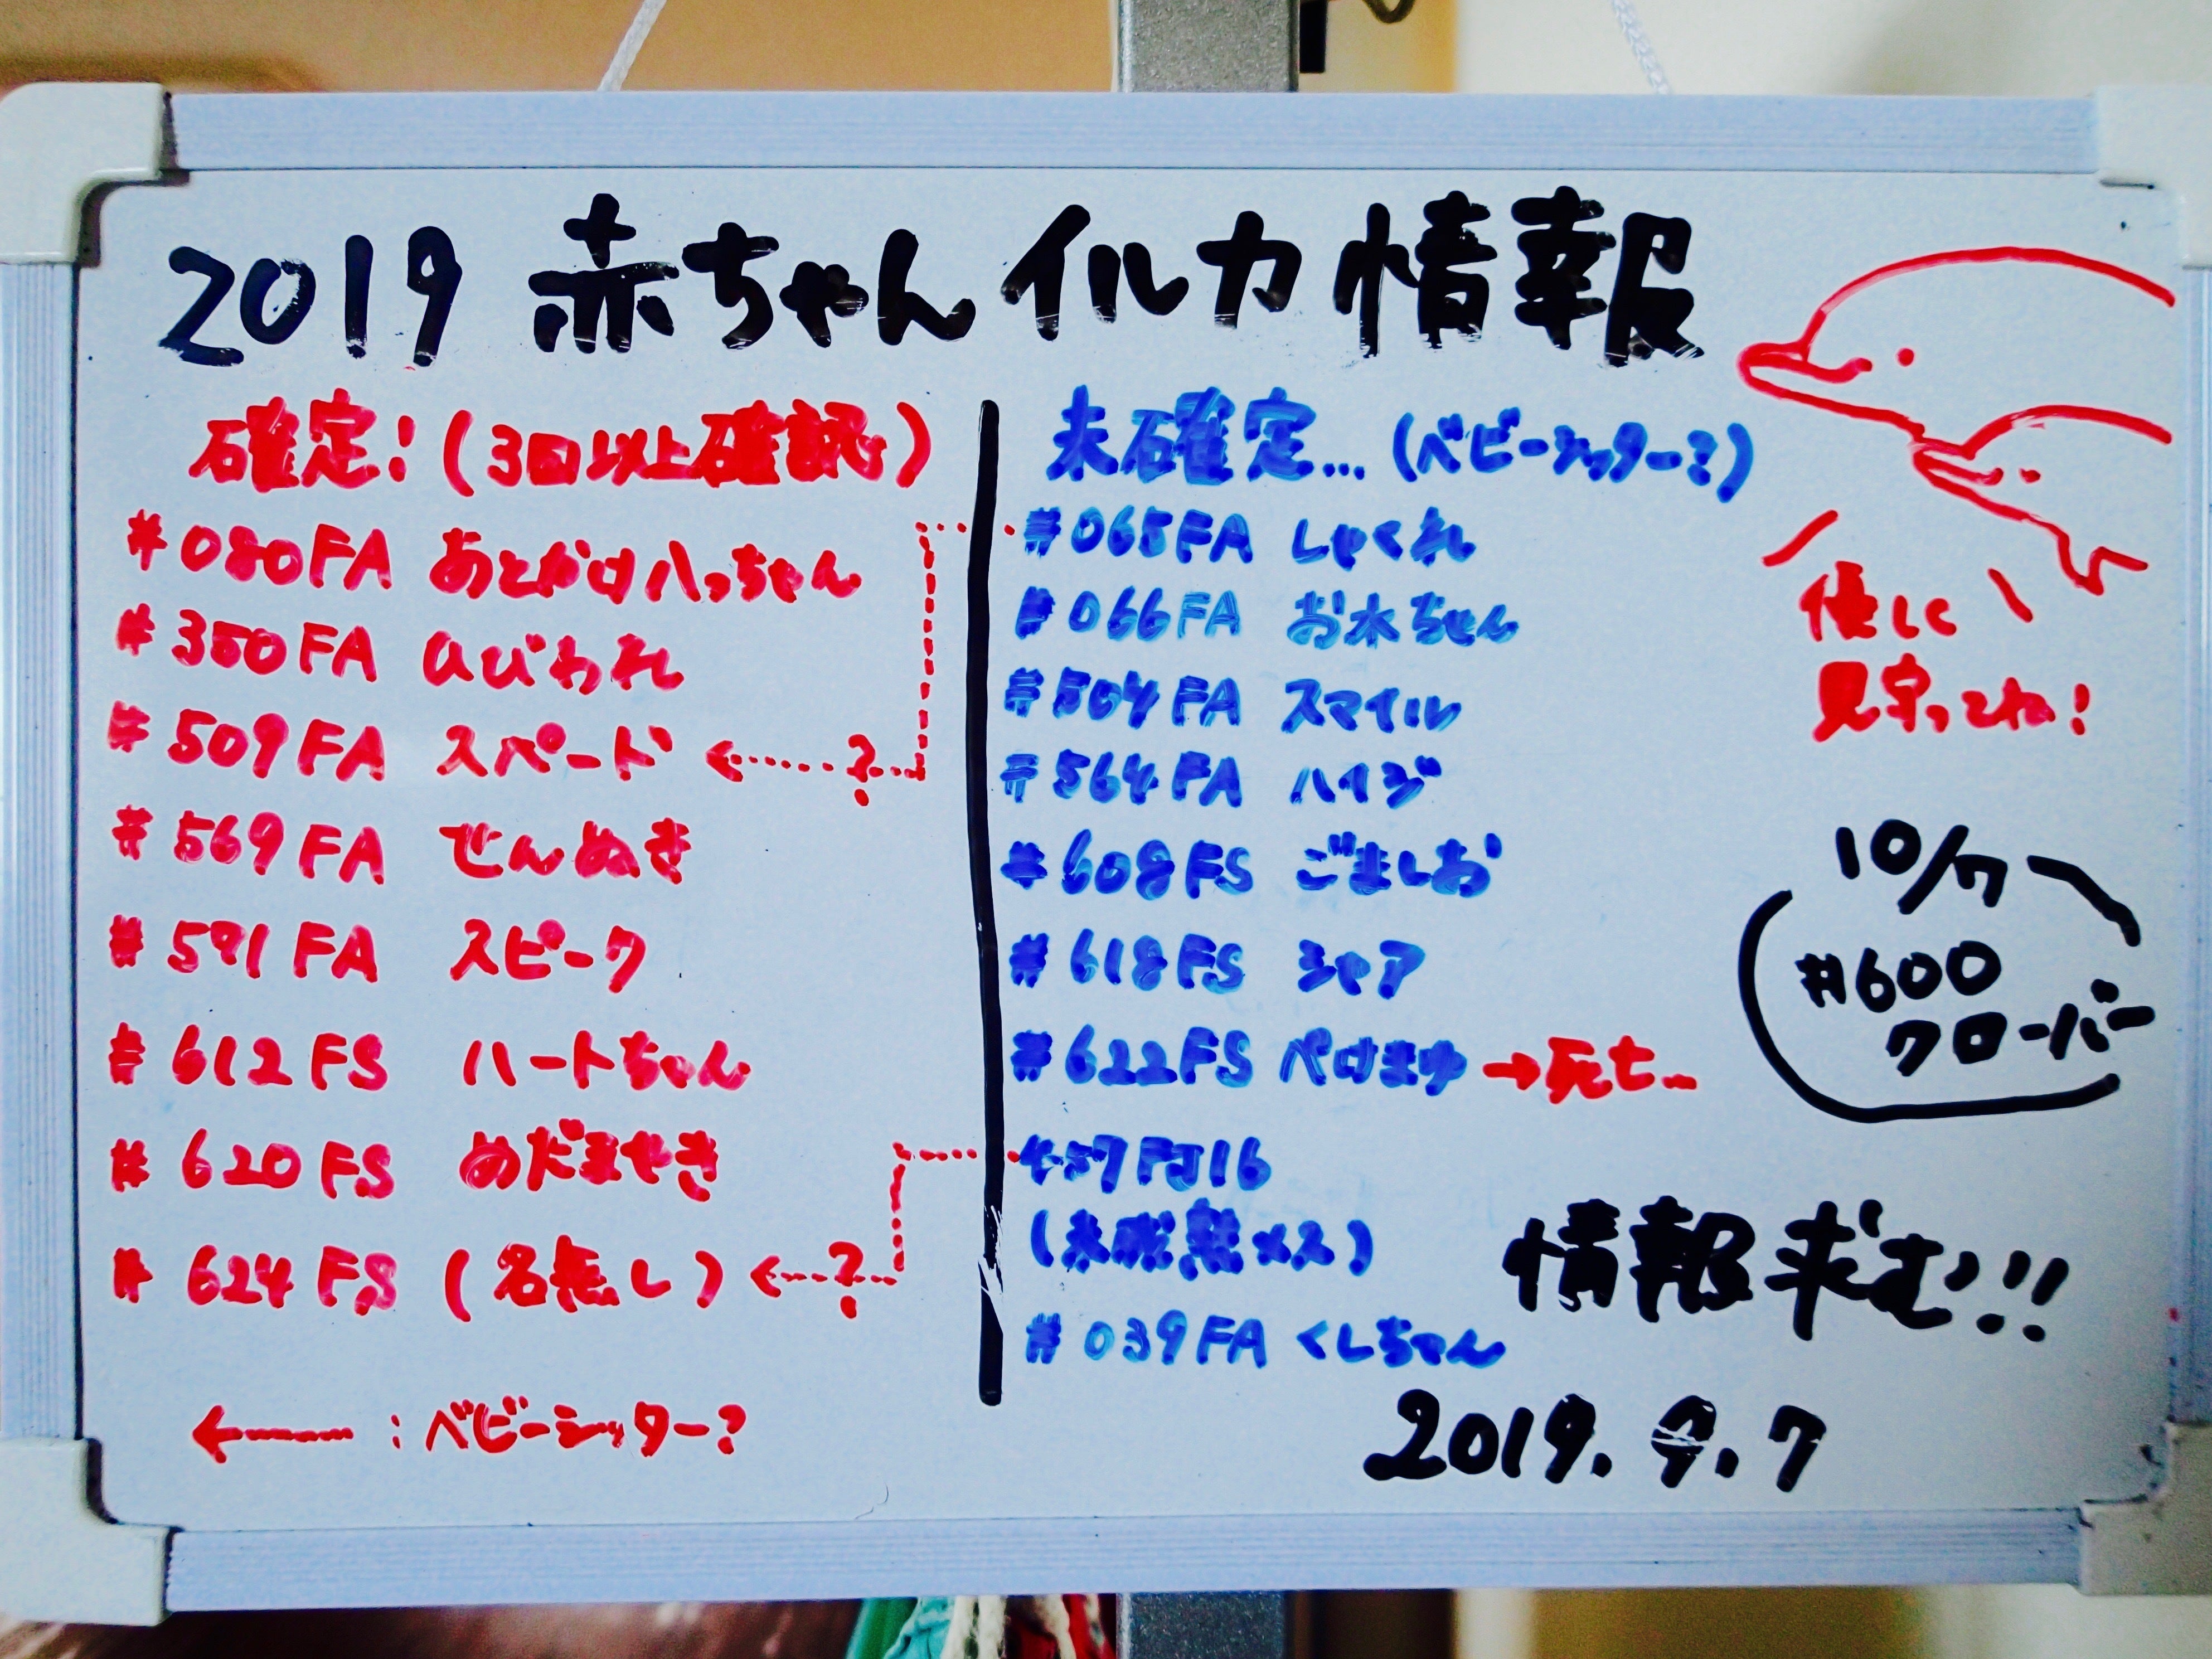 2019 赤ちゃんイルカ情報
確定!(3回以上確認)
#080FA あとかけハっちゃん
#350FA ひびわれ
#509FA スペード ←?
#569FA せんぬき
#591FA スピーク
#612FS ハートちゃん
#620FS めだまやき
#624FS (名無し) ←?
←---- :ベビーシッター?
未確定...(ベビーシッター?)
#065FA しゃくれ
#066FA お水ちゃん
#504FA スマイル
#564FA ハイジ
#608FS ごましお
#618FS シャア
#622FS ペけまゆ →死亡...
#57FJ16
(未成熟メス)
#039FA くしちゃん
優しく
見守ってね!
10/7
#600
クローバー
情報求む!!
2019.9.7